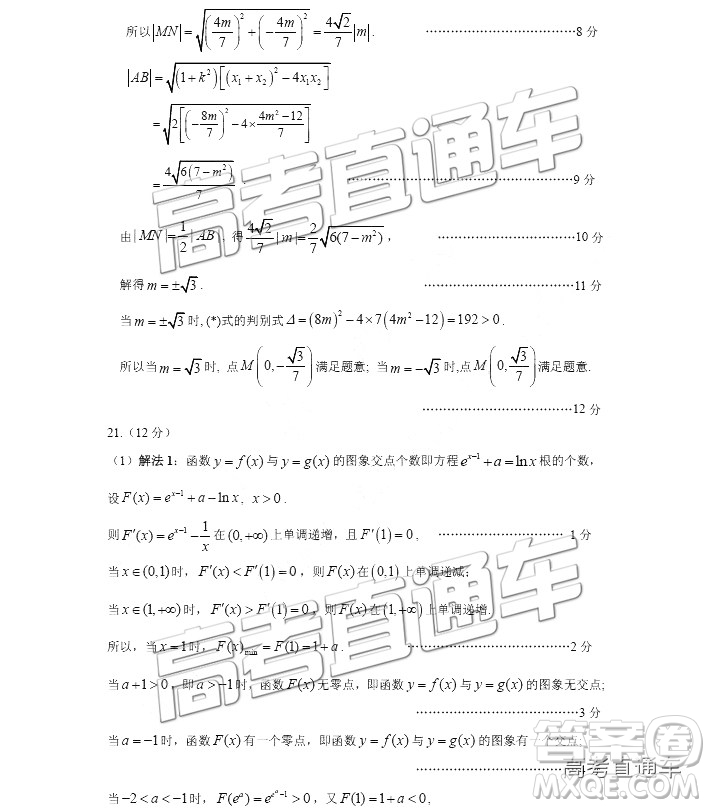 所以|MN|=√((4m/7)²+(-4m/7)²)=4√2/7|m|. ……………………………8 分
|AB|=√((1+k²)[(x₁+x₂)²-4x₁x₂])
=√(2[(-8m/7)²-4×(4m²-12)/7])
=4√(6(7-m²))/7 ……………………………9 分
由|MN|=1/2|AB|, 得4√2/7|m|=2/7√(6(7-m²)), ……………………………10 分
解得m=±√3. ……………………………11 分
当m=±√3时, (*)式的判别式Δ=(8m)²-4×7(4m²-12)=192>0.
所以当m=√3时, 点M(0,-√3/7)满足题意; 当m=-√3时,点M(0,√3/7)满足题意.
……………………………12 分
21.（12 分）
（1）解法 1：函数y=f(x)与y=g(x)的图象交点个数即方程eˣ⁻¹+a=lnx根的个数,
设F(x)=eˣ⁻¹+a-lnx, x>0.
则F′(x)=eˣ⁻¹-1/x在(0,+∞)上单调递增，且F′(1)=0, ……………………1 分
当x∈(0,1)时，F′(x)<F′(1)=0，则F(x)在(0.1)上单调递减;
当x∈(1,+∞)时，F′(x)>F′(1)=0，则F(x)在(1,+∞)上单调递增.
所以，当x=1时，F(x)min=F(1)=1+a. ……………………………2 分
当a+1>0，即a>-1时，函数F(x)无零点，即函数y=f(x)与y=g(x)的图象无交点;
……………………………3 分
当a=-1时，函数F(x)有一个零点，即函数y=f(x)与y=g(x)的图象有一个交点;
当-2<a<-1时，F(eᵃ)=e^(eᵃ-1)>0，又F(1)=1+a<0,
高考直通车
高考直通车
答案圈
高考直通车
MXQE.COM